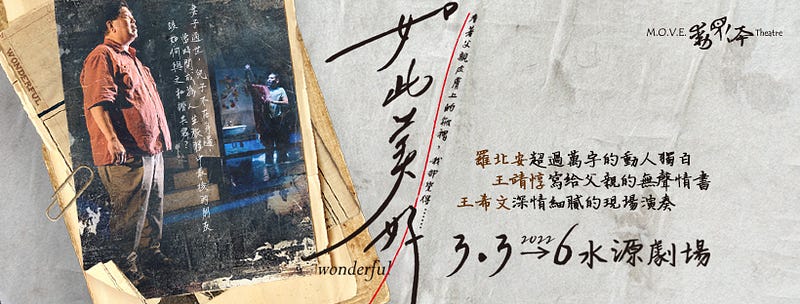 WONDERFUL
妻子過世，兒子不在身邊
當時間成為人生旅程中最後的朋友
該如何與之和諧共處？
如此美好
看著父親皮膚上的皺褶，我卻覺得……
wonderful
M.O.V.E. 動見体 Theatre
羅北安超過萬字的動人獨白
王靖惇寫給父親的無聲情書
王希文深情細膩的現場演奏
2022
3.3→6 水源劇場